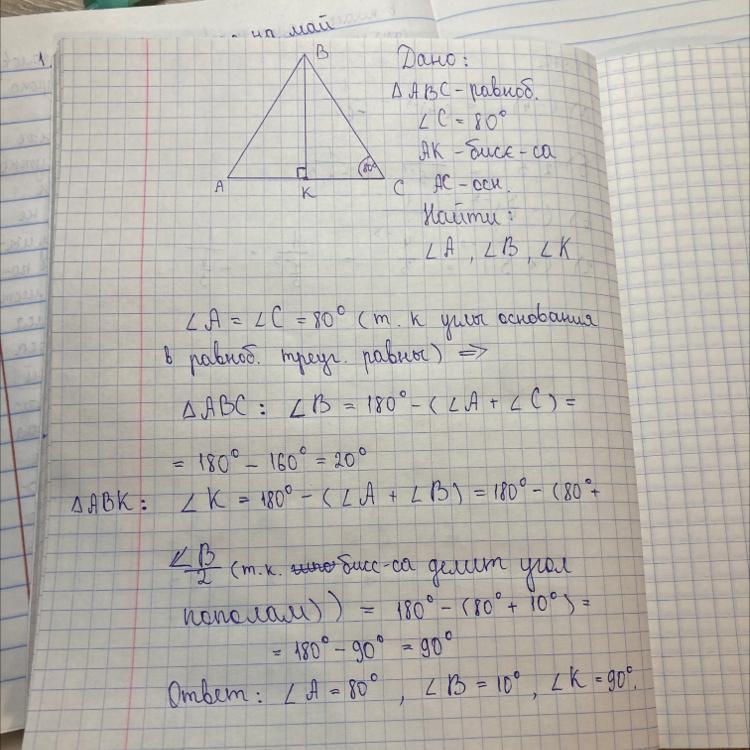 на май
1
B
A
K
C
80°
Дано:
△ABC - равноб.
∠C = 80°
AK - бисс-са
AC - осн.
Найти:
∠A, ∠B, ∠K
∠A = ∠C = 80° (т. к углы основания
в равноб. треуг. равны) =>
△ABC: ∠B = 180° - (∠A + ∠C) =
= 180° - 160° = 20°
△ABK: ∠K = 180° - (∠A + ∠B) = 180° - (80° +
∠B/2 (т.к. бисс-са делит угол
пополам)) = 180° - (80° + 10°) =
= 180° - 90° = 90°
Ответ: ∠A = 80°, ∠B = 10°, ∠K = 90°.